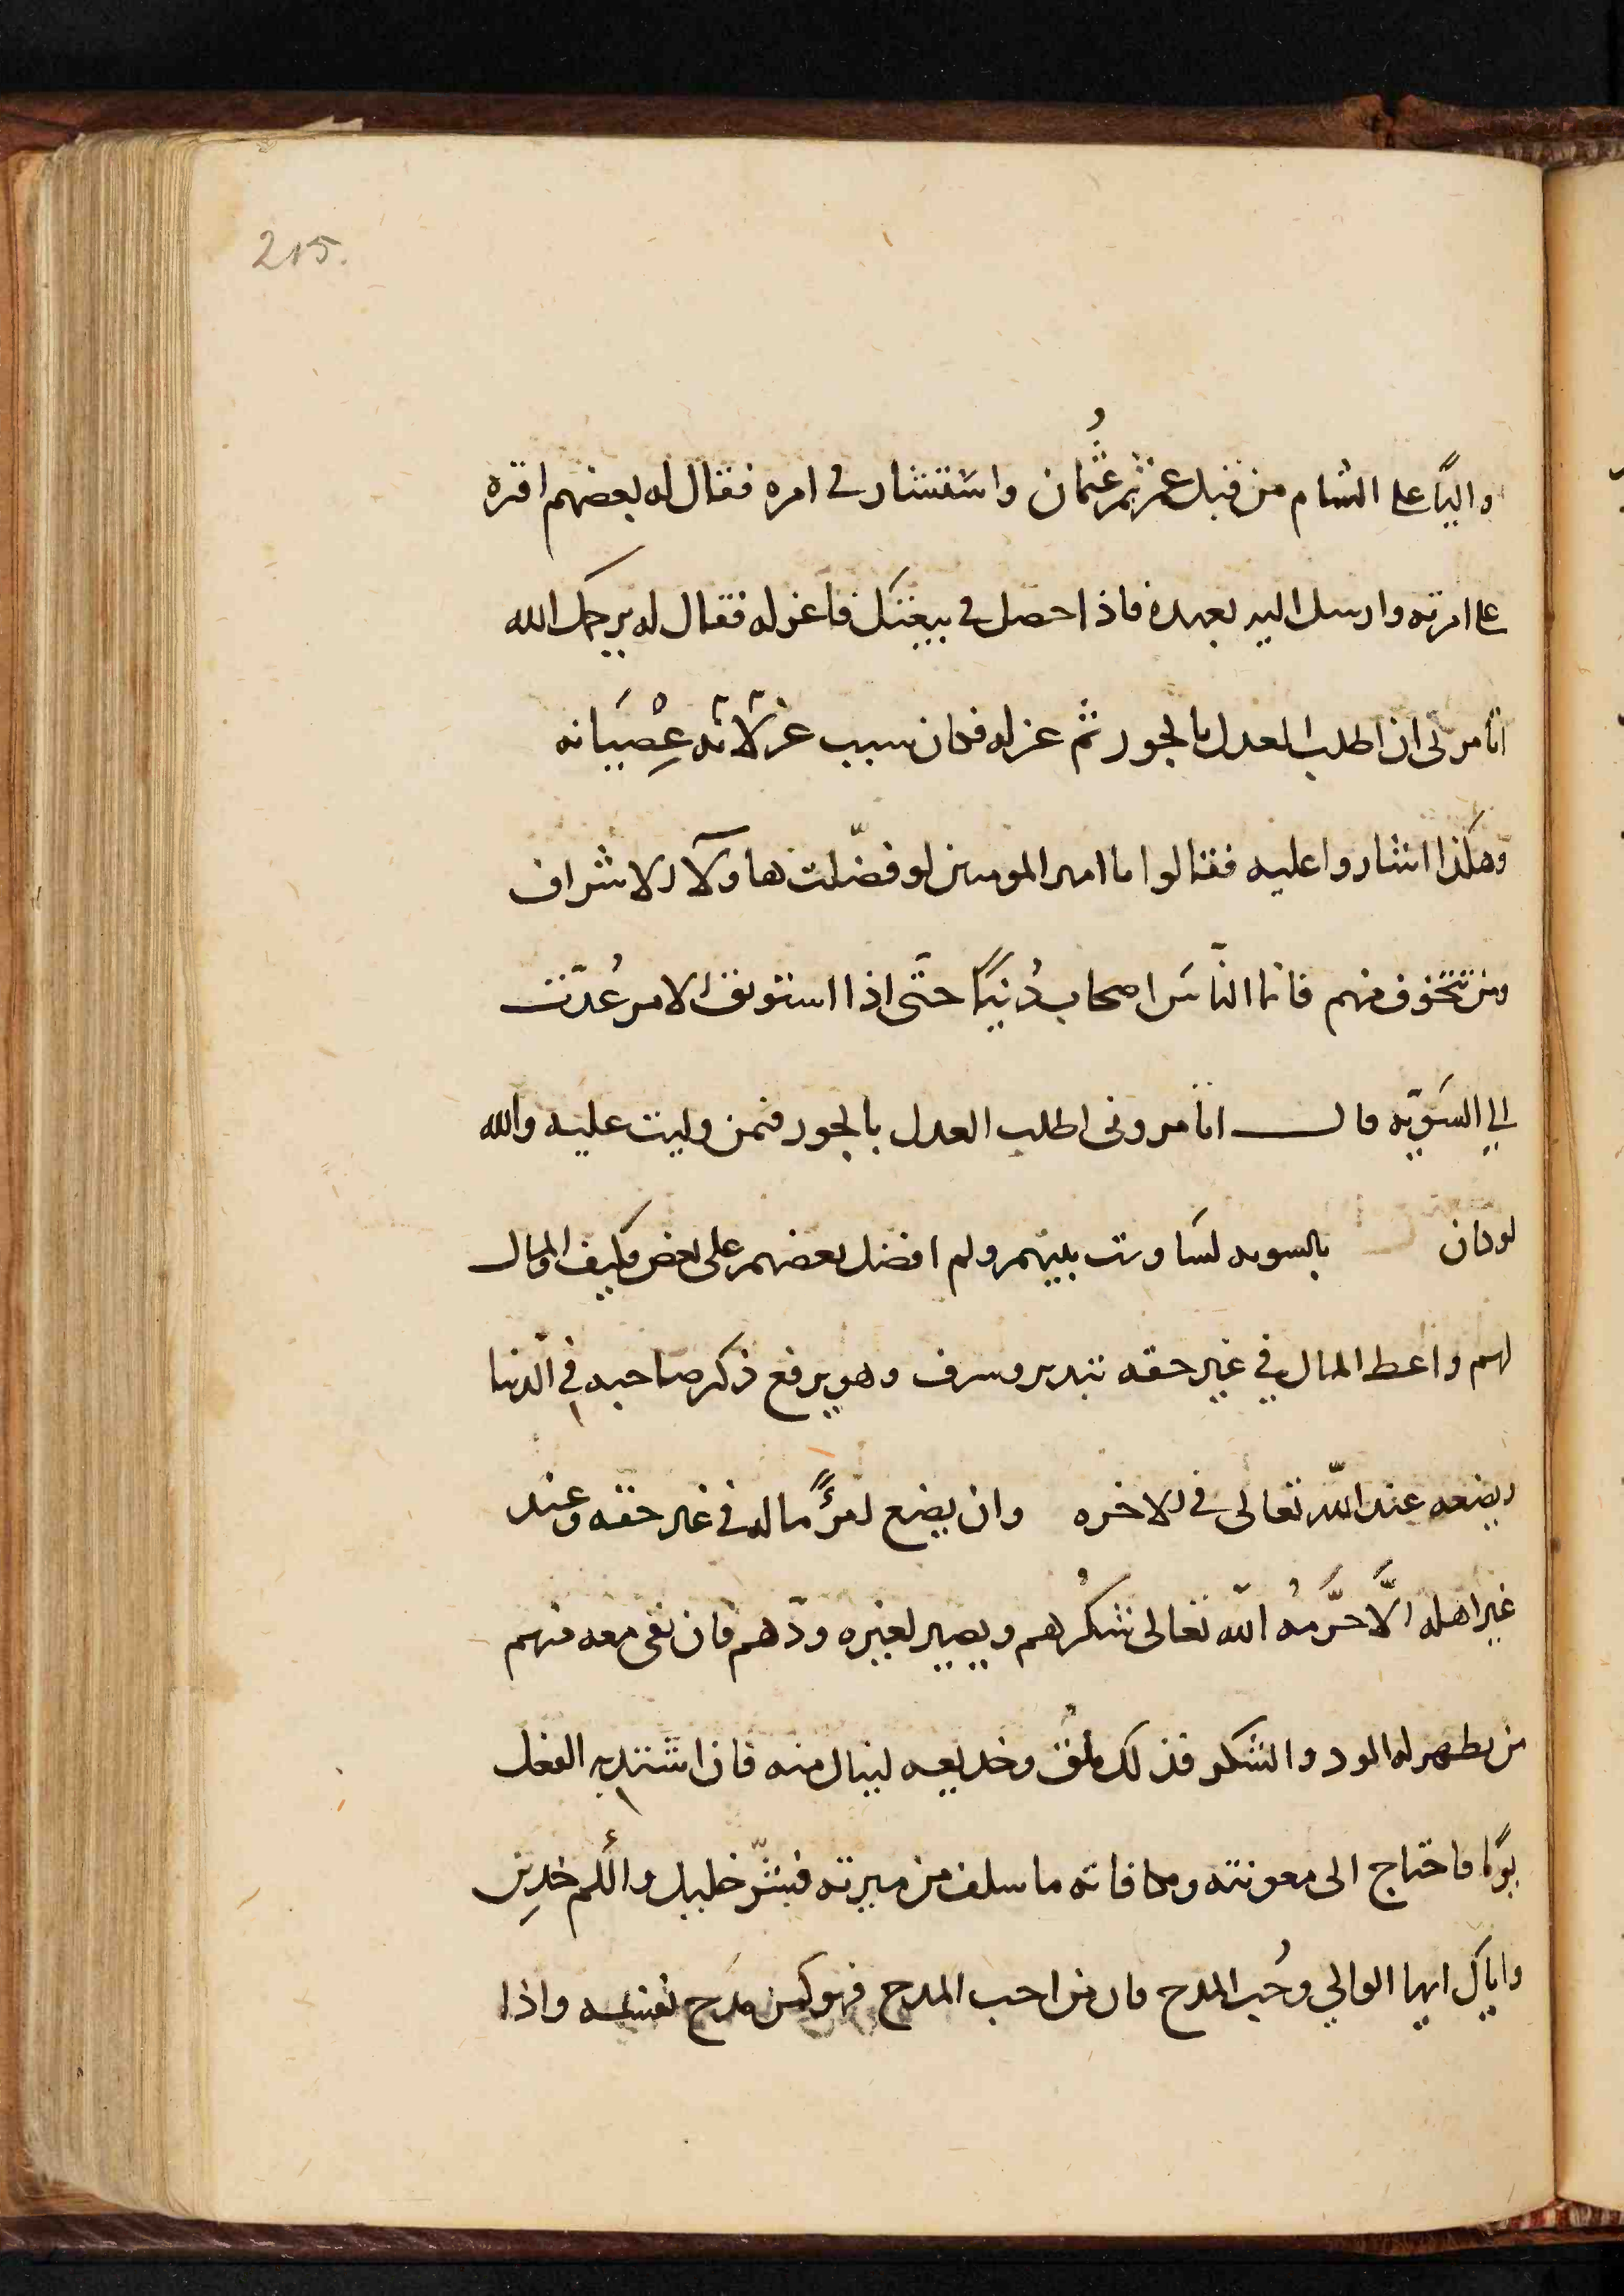 215.
واليًا على الشام من قبل عمر ثم عُثمان واستشار في امره فقال له بعضهم اقره
على امرته وارسل اليه بعهده فاذا حصل في بيعتك فاعزله فقال له يرحمك الله
اتامرنى ان اطلب العدل بالجور ثم عزله فكان سبب عزلاته عِصْيَانه
وهكذا اشاروا عليه فقالوا يا امير المومنين لو فضّلت هاولآ الاشراف
ومن تتخوف منهم فانما النّاسَ اصحاب دُنيَا حتَّى اذا استوثق الامر عُدّت
الى السَويّه قال اتامرونى اطلب العدل بالجور فمن وليت عليه والله
لو كان بالسويه لسَاويت بينهم ولم افضل بعضهم على بعض فكيف والمال
لهم واعطا المال في غير حقه تبدير وسرف وهو يرفع ذكر صاحبه في الدنيا
ويضعه عند الله تعالى في الاخره وان يضع امرؤٌ ماله في غير حقه وعند
غير اهله الَّا حَرَّمهُ الله تعالى شكرُهم ويصير لغيره ودّهم فان بقى معه منهم
من يظهر له الود والشكر فذلك ملقٌ وخديعه لينال منه فان اشتدت به النعل
يومًا فاحتاج الى معونته ومكافاته ما سلف من ميرته فبشرّ خليل والَم خدِين
واياك ايها الوالي وحُب المدح فان من احب المدح فهو كمن مدَح نفسه واذا